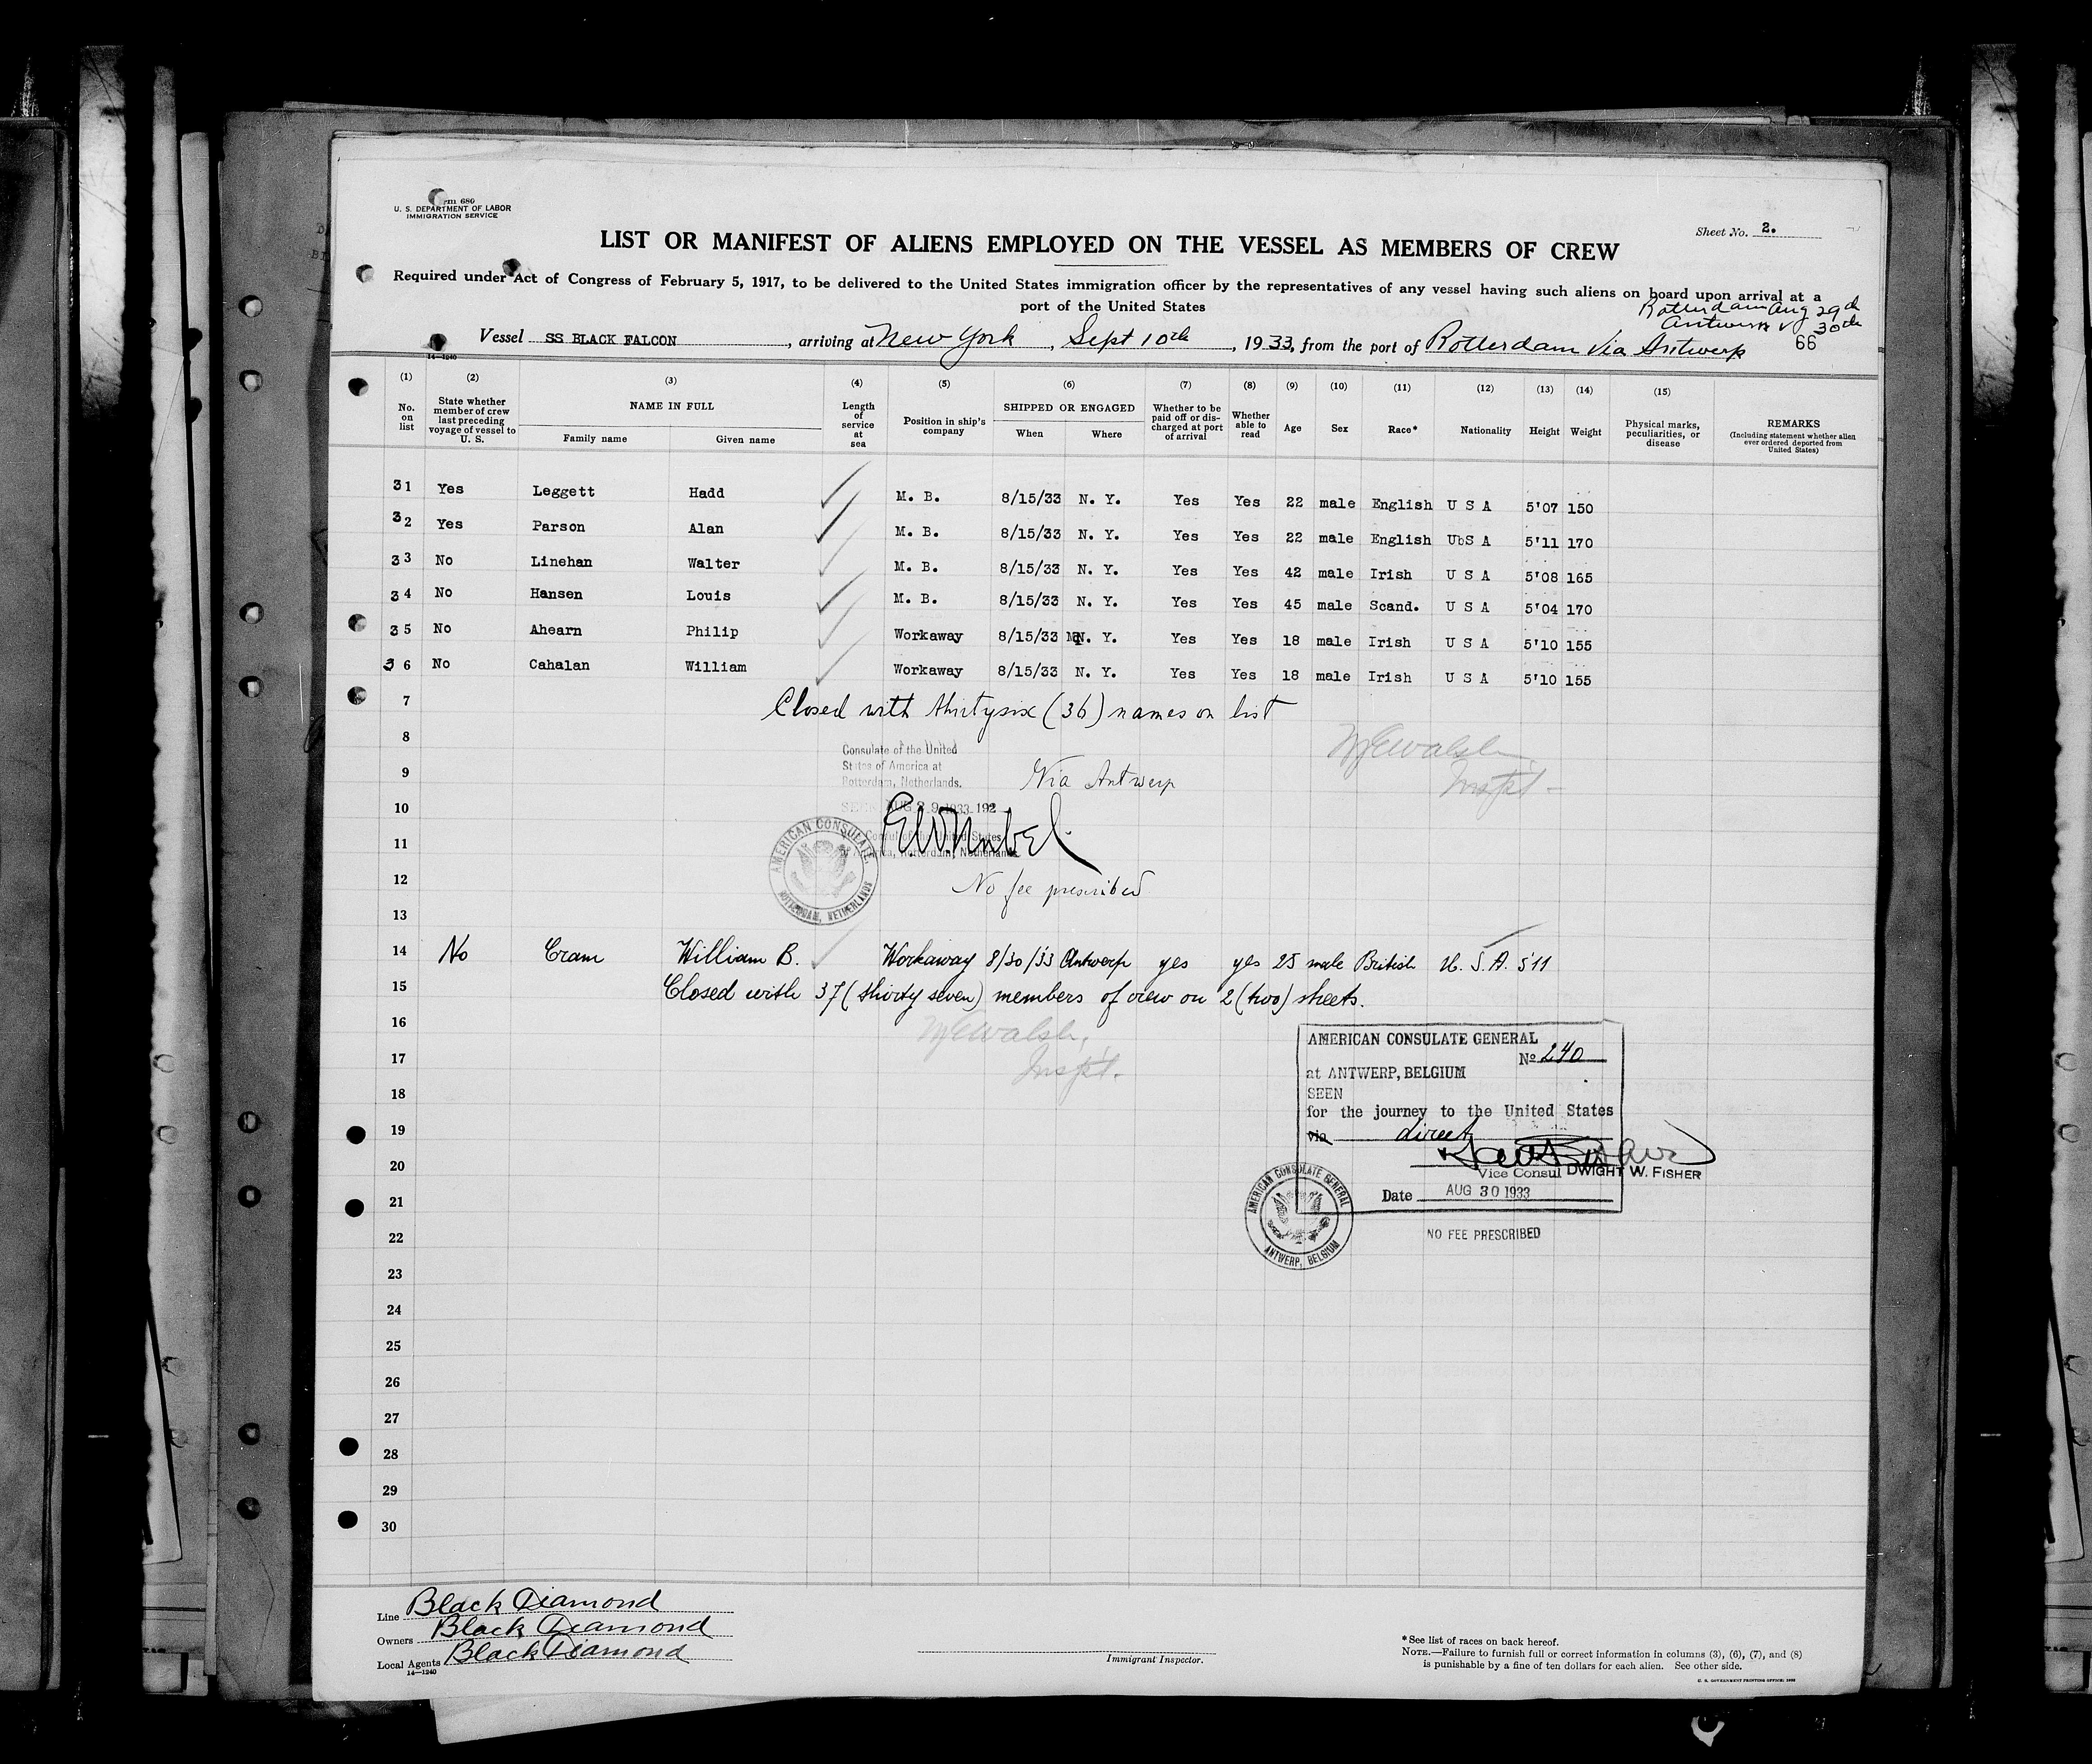 rm 680
U. S. DEPARTMENT OF LABOR
IMMIGRATION SERVICE
Sheet No. 2.
LIST OR MANIFEST OF ALIENS EMPLOYED ON THE VESSEL AS MEMBERS OF CREW
Required under Act of Congress of February 5, 1917, to be delivered to the United States immigration officer by the representatives of any vessel having such aliens on board upon arrival at a
port of the United States
Rotterdam Aug 29th
Antwerp 30th
Vessel SS BLACK FALCON, arriving at New York, Sept 10th, 1933, from the port of Rotterdam Via Antwerp 66
14-1240
(1) (2) (3) (4) (5) (6) (7) (8) (9) (10) (11) (12) (13) (14) (15)
No. on list State whether member of crew last preceding voyage of vessel to U. S. NAME IN FULL Family name Given name Length of service at sea Position in ship's company SHIPPED OR ENGAGED When Where Whether to be paid off or discharged at port of arrival Whether able to read Age Sex Race* Nationality Height Weight Physical marks, peculiarities, or disease REMARKS (Including statement whether alien ever ordered deported from United States)
31 Yes Leggett Hadd M. B. 8/15/33 N. Y. Yes Yes 22 male English U S A 5'07 150
32 Yes Parson Alan M. B. 8/15/33 N. Y. Yes Yes 22 male English UbS A 5'11 170
33 No Linehan Walter M. B. 8/15/33 N. Y. Yes Yes 42 male Irish U S A 5'08 165
34 No Hansen Louis M. B. 8/15/33 N. Y. Yes Yes 45 male Scand. U S A 5'04 170
35 No Ahearn Philip Workaway 8/15/33 N. Y. Yes Yes 18 male Irish U S A 5'10 155
36 No Cahalan William Workaway 8/15/33 N. Y. Yes Yes 18 male Irish U S A 5'10 155
7 Closed with thirtysix (36) names on list
8
Consulate of the United
States of America at
Rotterdam, Netherlands.
9 Via Antwerp
10 AUG 29 1933 192
11 Consul of the United States
Rotterdam, Netherlands
AMERICAN CONSULATE
ROTTERDAM, NETHERLANDS
12 No fee prescribed
13
14 No Cram William B. Workaway 8/30/33 Antwerp yes yes 25 male British U. S. A. 5'11
15 Closed with 37 (thirty seven) members of crew on 2 (two) sheets.
16
17
18
AMERICAN CONSULATE GENERAL
No 240
at ANTWERP, BELGIUM
SEEN
for the journey to the United States
19 via direct
20 Vice Consul DWIGHT W. FISHER
21 Date AUG 30 1933
AMERICAN CONSULATE GENERAL
ANTWERP, BELGIUM
22 NO FEE PRESCRIBED
23
24
25
26
27
28
29
30
Line Black Diamond
Owners Black Diamond
Local Agents Black Diamond
14-1240
Immigrant Inspector.
*See list of races on back hereof.
NOTE.—Failure to furnish full or correct information in columns (3), (6), (7), and (8)
is punishable by a fine of ten dollars for each alien. See other side.